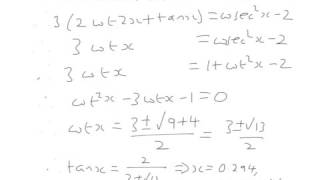 3(2cot2x+tanx)=cosec²x-2
3cotx =cosec²x-2
3cotx =1+cot²x-2
∴ cot²x-3cotx-1=0
cotx = (3±√(9+4))/2 = (3±√13)/2
∴ tanx = 2/(3±√13) ⇒x=0.294,